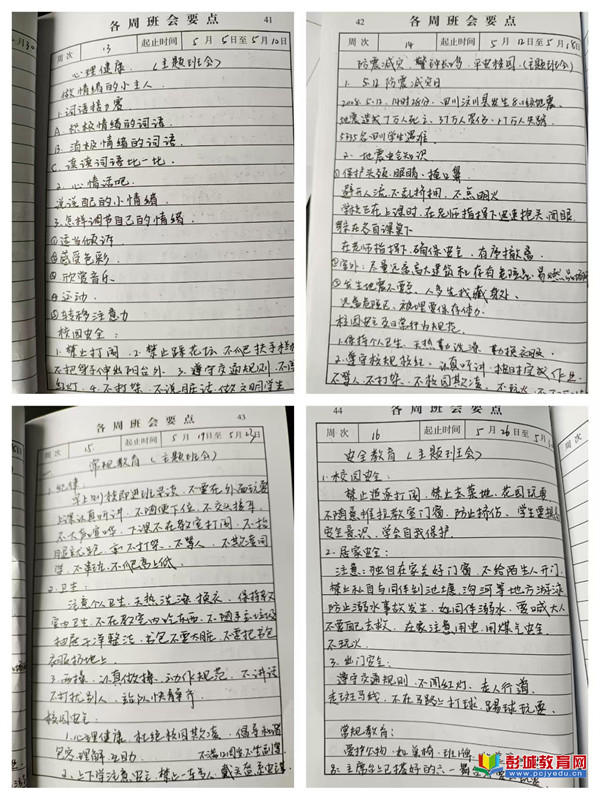 各周班会要点
41
周次
13
起止时间
5月5日至5月10日
心理健康 (主题班会)
做情绪的小主人
1.词语接力赛
A. 积极情绪的词语
B. 消极情绪的词语
C. 读读词语比一比
2. 心情话吧
说说自己的小情绪
3.怎样调节自己的情绪
①适当倾诉
②感受色彩
③欣赏音乐
④运动
⑤转移注意力
校园安全:
1.禁止打闹 2.禁止踩花坛 不爬扶手
不把身子伸出阳台外 3.遵守交通规则
红灯 4.不打架 不说脏话 做文明学生
42
各周班会要点
周次
14
起止时间
5月12日至5月18日
防震减灾、警钟长鸣,平安校园(主题班会)
1. 5.12 防震减灾日
2008.5.12, 14时28分,四川汶川县发生8.0级地震
地震造成7万人死亡,37万人受伤,1.7万人失踪
5335名四川学生遇难
2. 地震安全知识
①保护头颈、眼睛,捂口鼻
避开人流,不乱挤拥,不点明火
学校正在上课时,在老师指挥下迅速抱头闭眼
躲在各自课桌下
在老师指挥下,确保安全,有序撤离
②室外:尽量远离高大建筑和存有危险品、易燃品
③发生地震不要
远离危险区,被埋要保存体力
校园安全及日常行为规范
1.保持个人卫生,天热勤洗澡,勤换衣服
2.遵守校规校纪,认真听讲,按时完成作业
不骂人 不打架 不校园欺凌 不玩火
各周班会要点
43
周次
15
起止时间
5月19日至5月 日
常规教育(主题班会)
1.纪律:
早上到校即进班早读,不要在外面玩耍
上课认真听讲,不随便下位,不交头接耳
不大声喧哗,下课不在教室打闹,不抬
不打架,不骂人,不欺凌同
学,不 不爬高上低
2.卫生:
注意个人卫生,天热洗澡换衣,保持教
室内卫生,不在教室内吃东西,不随手丢垃圾
桌面干净整洁,书包不要太脏,不要把书包
衣服扔地上
3.两操:认真做操,动作规范,不讲话
不打扰别人,站队快静齐
校园安全
1.心理健康,杜绝校园欺凌,倡导和谐
包容理解互助
不满12周岁不坐
2.上下学注意安全,禁止 戴头盔系安全
44
各周班会要点
周次
16
起止时间
5月26日至5月
安全教育(主题班会)
1.校园安全:
禁止追逐打闹,禁止去菜地、花园玩弄
不随意推拉教室门窗,防止挤伤,学生要提高
安全意识,学会自我保护
2.居家安全:
注意:独自在家关好门窗,不给陌生人开门,
禁止私自与同伴到池塘、沟河等地方游泳
防止溺水事故发生,如同伴溺水,要喊大人
不要盲目去救,在家注意用电用煤气安全
不玩火
3.出门安全:
遵守交通规则,不闯红灯,走人行道
走斑马线,不在马路上打球、踢球玩耍
常规教育:
爱护公物:
彭城教育网
www.pcjyedu.cn